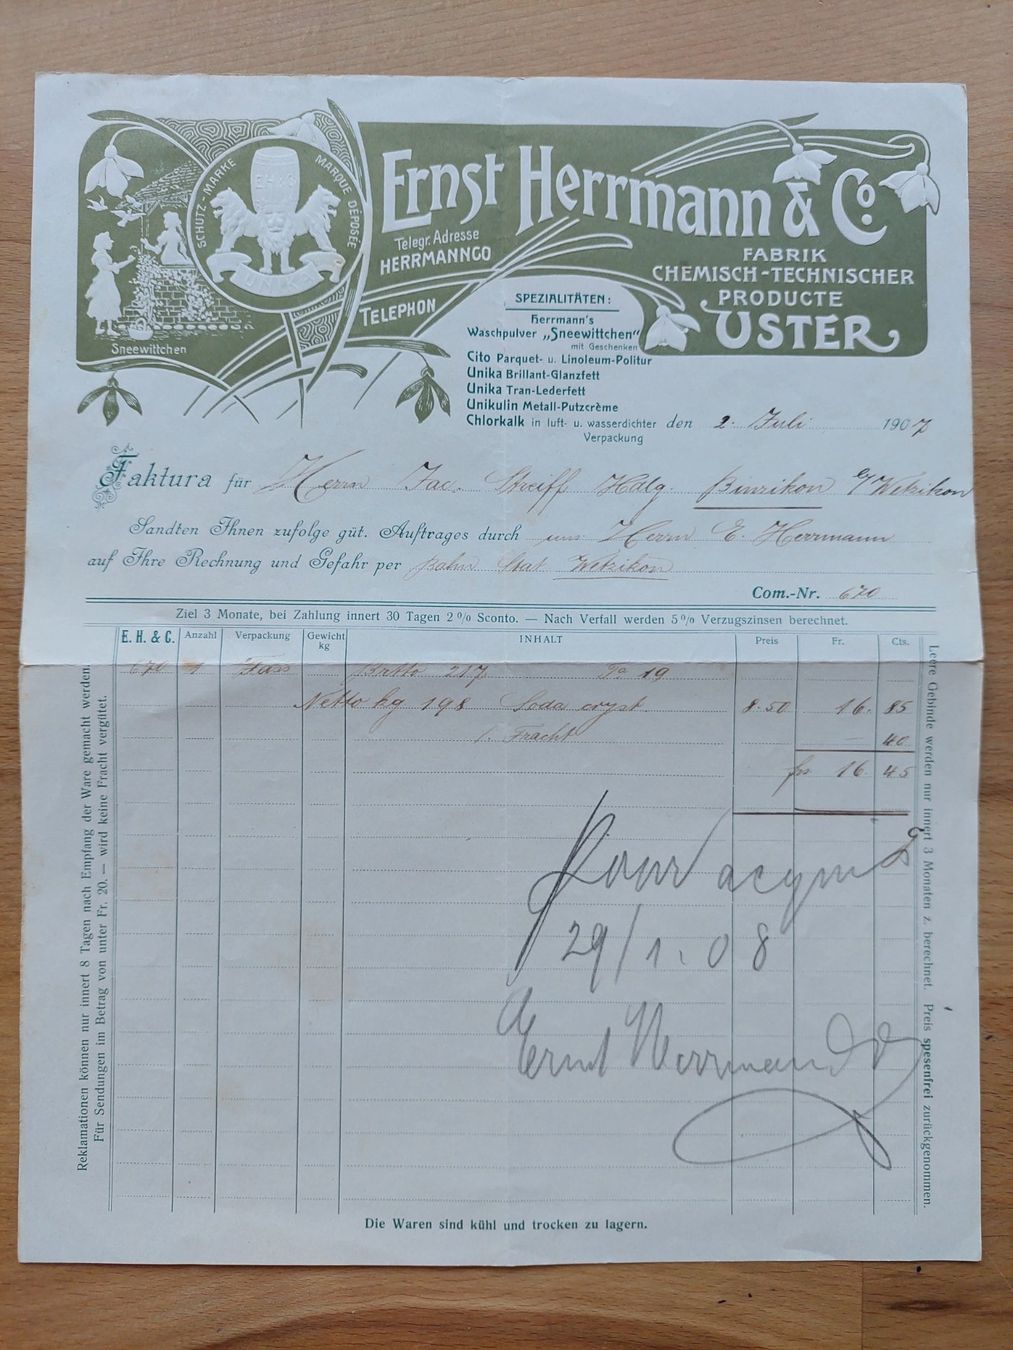 SCHUTZ-MARKE MARQUE DÉPOSÉE
EH & C
UNIKA
Sneewittchen
Ernst Herrmann & Co.
Telegr. Adresse
HERRMANNCO
TELEPHON
FABRIK
CHEMISCH-TECHNISCHER
PRODUCTE
USTER
SPEZIALITÄTEN:
Herrmann's
Waschpulver „Sneewittchen"
mit Geschenken
Cito Parquet- u. Linoleum-Politur
Unika Brillant-Glanzfett
Unika Tran-Lederfett
Unikulin Metall-Putzcrème
Chlorkalk in luft- u. wasserdichter
Verpackung
den 2. Juli 1907
Faktura für Herrn Jac. Streiff Hdlg. Binzikon b/Wetzikon
Sandten Ihnen zufolge güt. Auftrages durch uns. Herrn E. Herrmann
auf Ihre Rechnung und Gefahr per Bahn Stat. Wetzikon
Com.-Nr. 670
Ziel 3 Monate, bei Zahlung innert 30 Tagen 2 % Sconto. — Nach Verfall werden 5 % Verzugszinsen berechnet.
E. H. & C. Anzahl Verpackung Gewicht kg INHALT Preis Fr. Cts.
670 1 Fass Brtto 217 Ta 19
Netto kg 198 Soda cryst. 8.50 16. 85
/. Fracht — 40
frs 16. 45
Pour acquit
29/1.08
Ernst Herrmann & Co
Reklamationen können nur innert 8 Tagen nach Empfang der Ware gemacht werden.
Für Sendungen im Betrag von unter Fr. 20.— wird keine Fracht vergütet.
Leere Gebinde werden nur innert 3 Monaten z. berechnet. Preis spesenfrei zurückgenommen.
Die Waren sind kühl und trocken zu lagern.